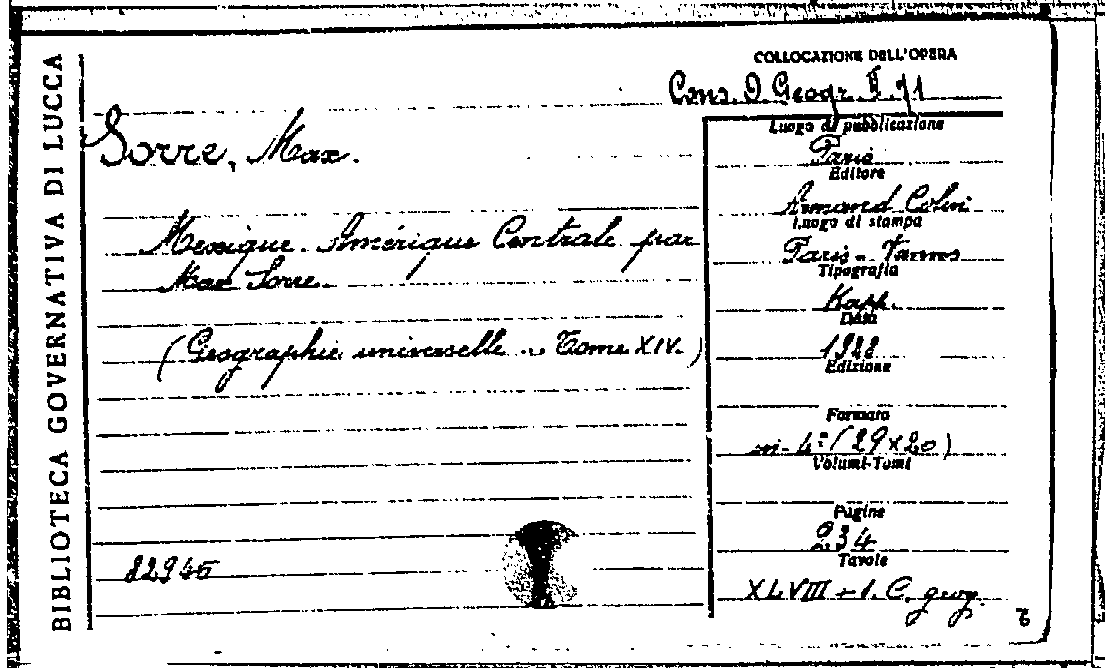 BIBLIOTECA GOVERNATIVA DI LUCCA
COLLOCAZIONE DELL'OPERA
Cons. D. Geogr. I. 71
Sorre, Max.
Mexique. Amérique Centrale par
Max Sorre.
(Géographie universelle. Tome XIV.)
82945
Luogo di pubblicazione
Paris
Editore
Armand Colin
Luogo di stampa
Paris
Tipografia
Kapp.
Data
1928
Edizione
Formato
in-4° (29x20)
Volumi-Tomi
Pagine
234
Tavole
XLVIII + 1. C. geog.